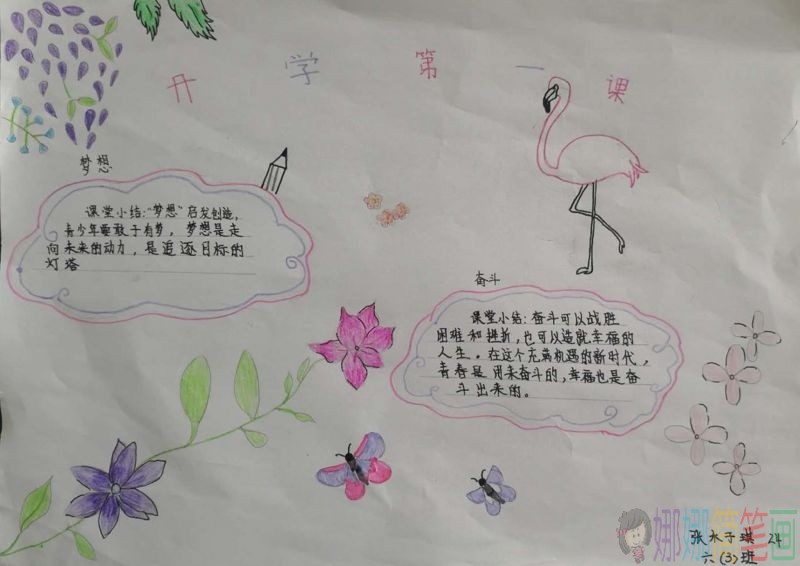 开学第一课
梦想
课堂小结:“梦想”启发创造,
青少年要敢于有梦,梦想是走
向未来的动力,是追逐目标的
灯塔
奋斗
课堂小结:奋斗可以战胜
困难和挫折,也可以造就幸福的
人生。在这个充满机遇的新时代,
青春是用来奋斗的,幸福也是奋
斗出来的。
张水子琪 24
六(3)班
娜娜简笔画